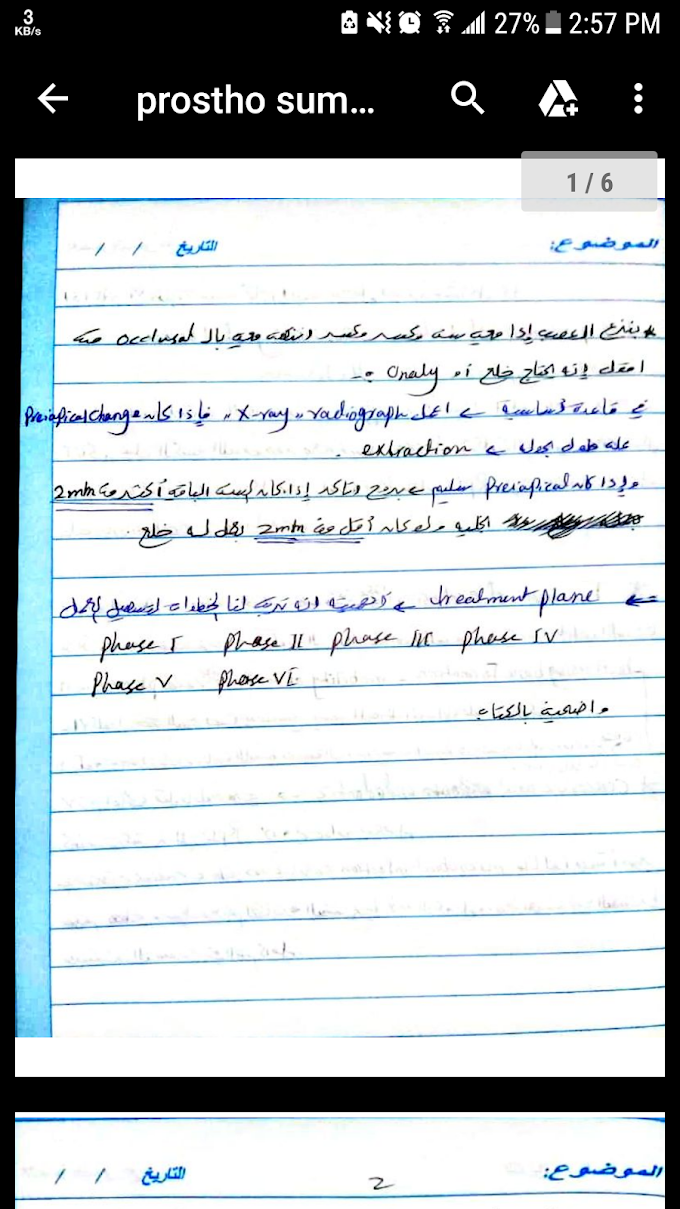 3
KB/s
27% 2:57 PM
prostho sum...
1 / 6
الموضوع: التاريخ / /
* بننزع العصب إذا معي سنة وكسر وكسر معي بال occlusal
إنه يحتاج خلع أم Onaly :-
في قاعدة أساسية ← اعمل X-ray „ radiograph „ فإذا كان Preiapical change
على طول بجوله ← extraction
وإذا كان Preiapical سليم ← بروح وتأكد إذا كان السنة الباقية أكثر من 2mm
ولو كان أقل من 2mm بعمل له خلع .
⇐ treatment plane ← أهميته انه الخطوات لتسهيل العمل
phase I phase II phase III phase IV
Phase V phase VI
واضحين بالكتاب.
الموضوع: 2 التاريخ / /